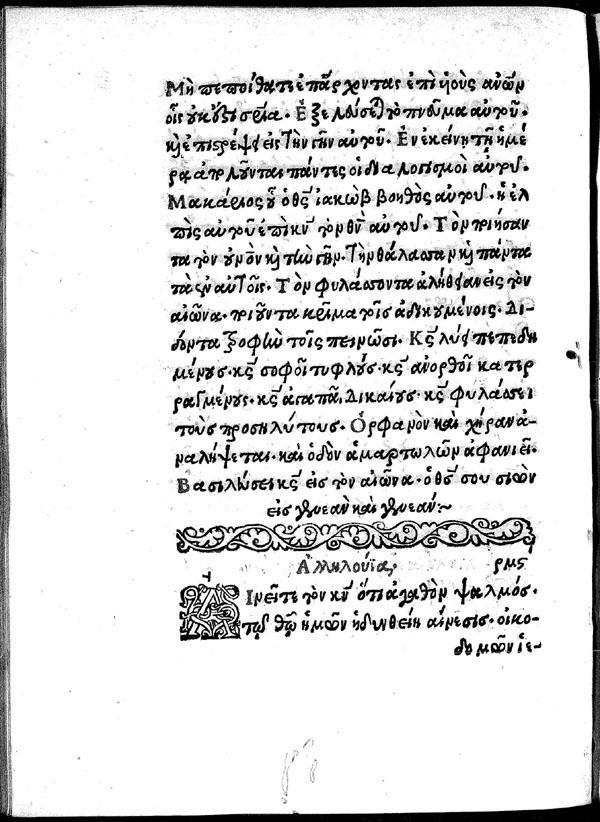 Μὴ πεποίθατε ἐπ᾽ ἄρχοντας ἐπὶ υἱοὺς ἀνων̅
οἷς οὐκ ἔστι σρ̅ία. Ἐξελεύσεται τὸ πν̅εῦμα αὐτοῦ.
καὶ ἐπιστρέψει εἰς τὴν γῆν αὐτοῦ. Ἐν ἐκείνῃ τῇ ἡμέ
ρᾳ ἀπολοῦνται πάντες οἱ διαλογισμοὶ αὐτοῦ.
Μακάριος οὗ ὁ θς̅ ἰακὼβ βοηθὸς αὐτοῦ. ἡ ἐλ
πὶς αὐτοῦ ἐπὶ κν̅ τὸν θν̅ αὐτοῦ. Τὸν ποιήσαν
τα τὸν οὐνὸν καὶ τὴν γῆν. τὴν θάλασσαν καὶ πάντα
τὰ ἐν αὐτοῖς. Τὸν φυλάσσοντα ἀλήθειαν εἰς τὸν
αἰῶνα. ποιοῦντα κρῖμα τοῖς ἀδικουμένοις. Δι
δόντα τροφὴν τοῖς πεινῶσι. Κς̅ λύει πεπεδη
μένους. κς̅ σοφοῖ τυφλούς. κς̅ ἀνορθοῖ κατερ
ραγμένους. κς̅ ἀγαπᾷ δικαίους. κς̅ φυλάσσει
τοὺς προσηλύτους. Ὀρφανὸν καὶ χήραν ἀ
ναλήψεται. καὶ ὁδὸν ἁμαρτωλῶν ἀφανιεῖ.
Βασιλεύσει κς̅ εἰς τὸν αἰῶνα. ὁ θς̅ σου σιὼν
εἰς γενεὰν καὶ γενεάν:~
Ἀλληλούϊα, ρμς
ΑἸνεῖτε τὸν κν̅ ὅτι ἀγαθὸν ψαλμός.
τῷ θῷ ἡμῶν ἡδυνθείη αἴνεσις. οἰκο-
δομῶν ἱε-